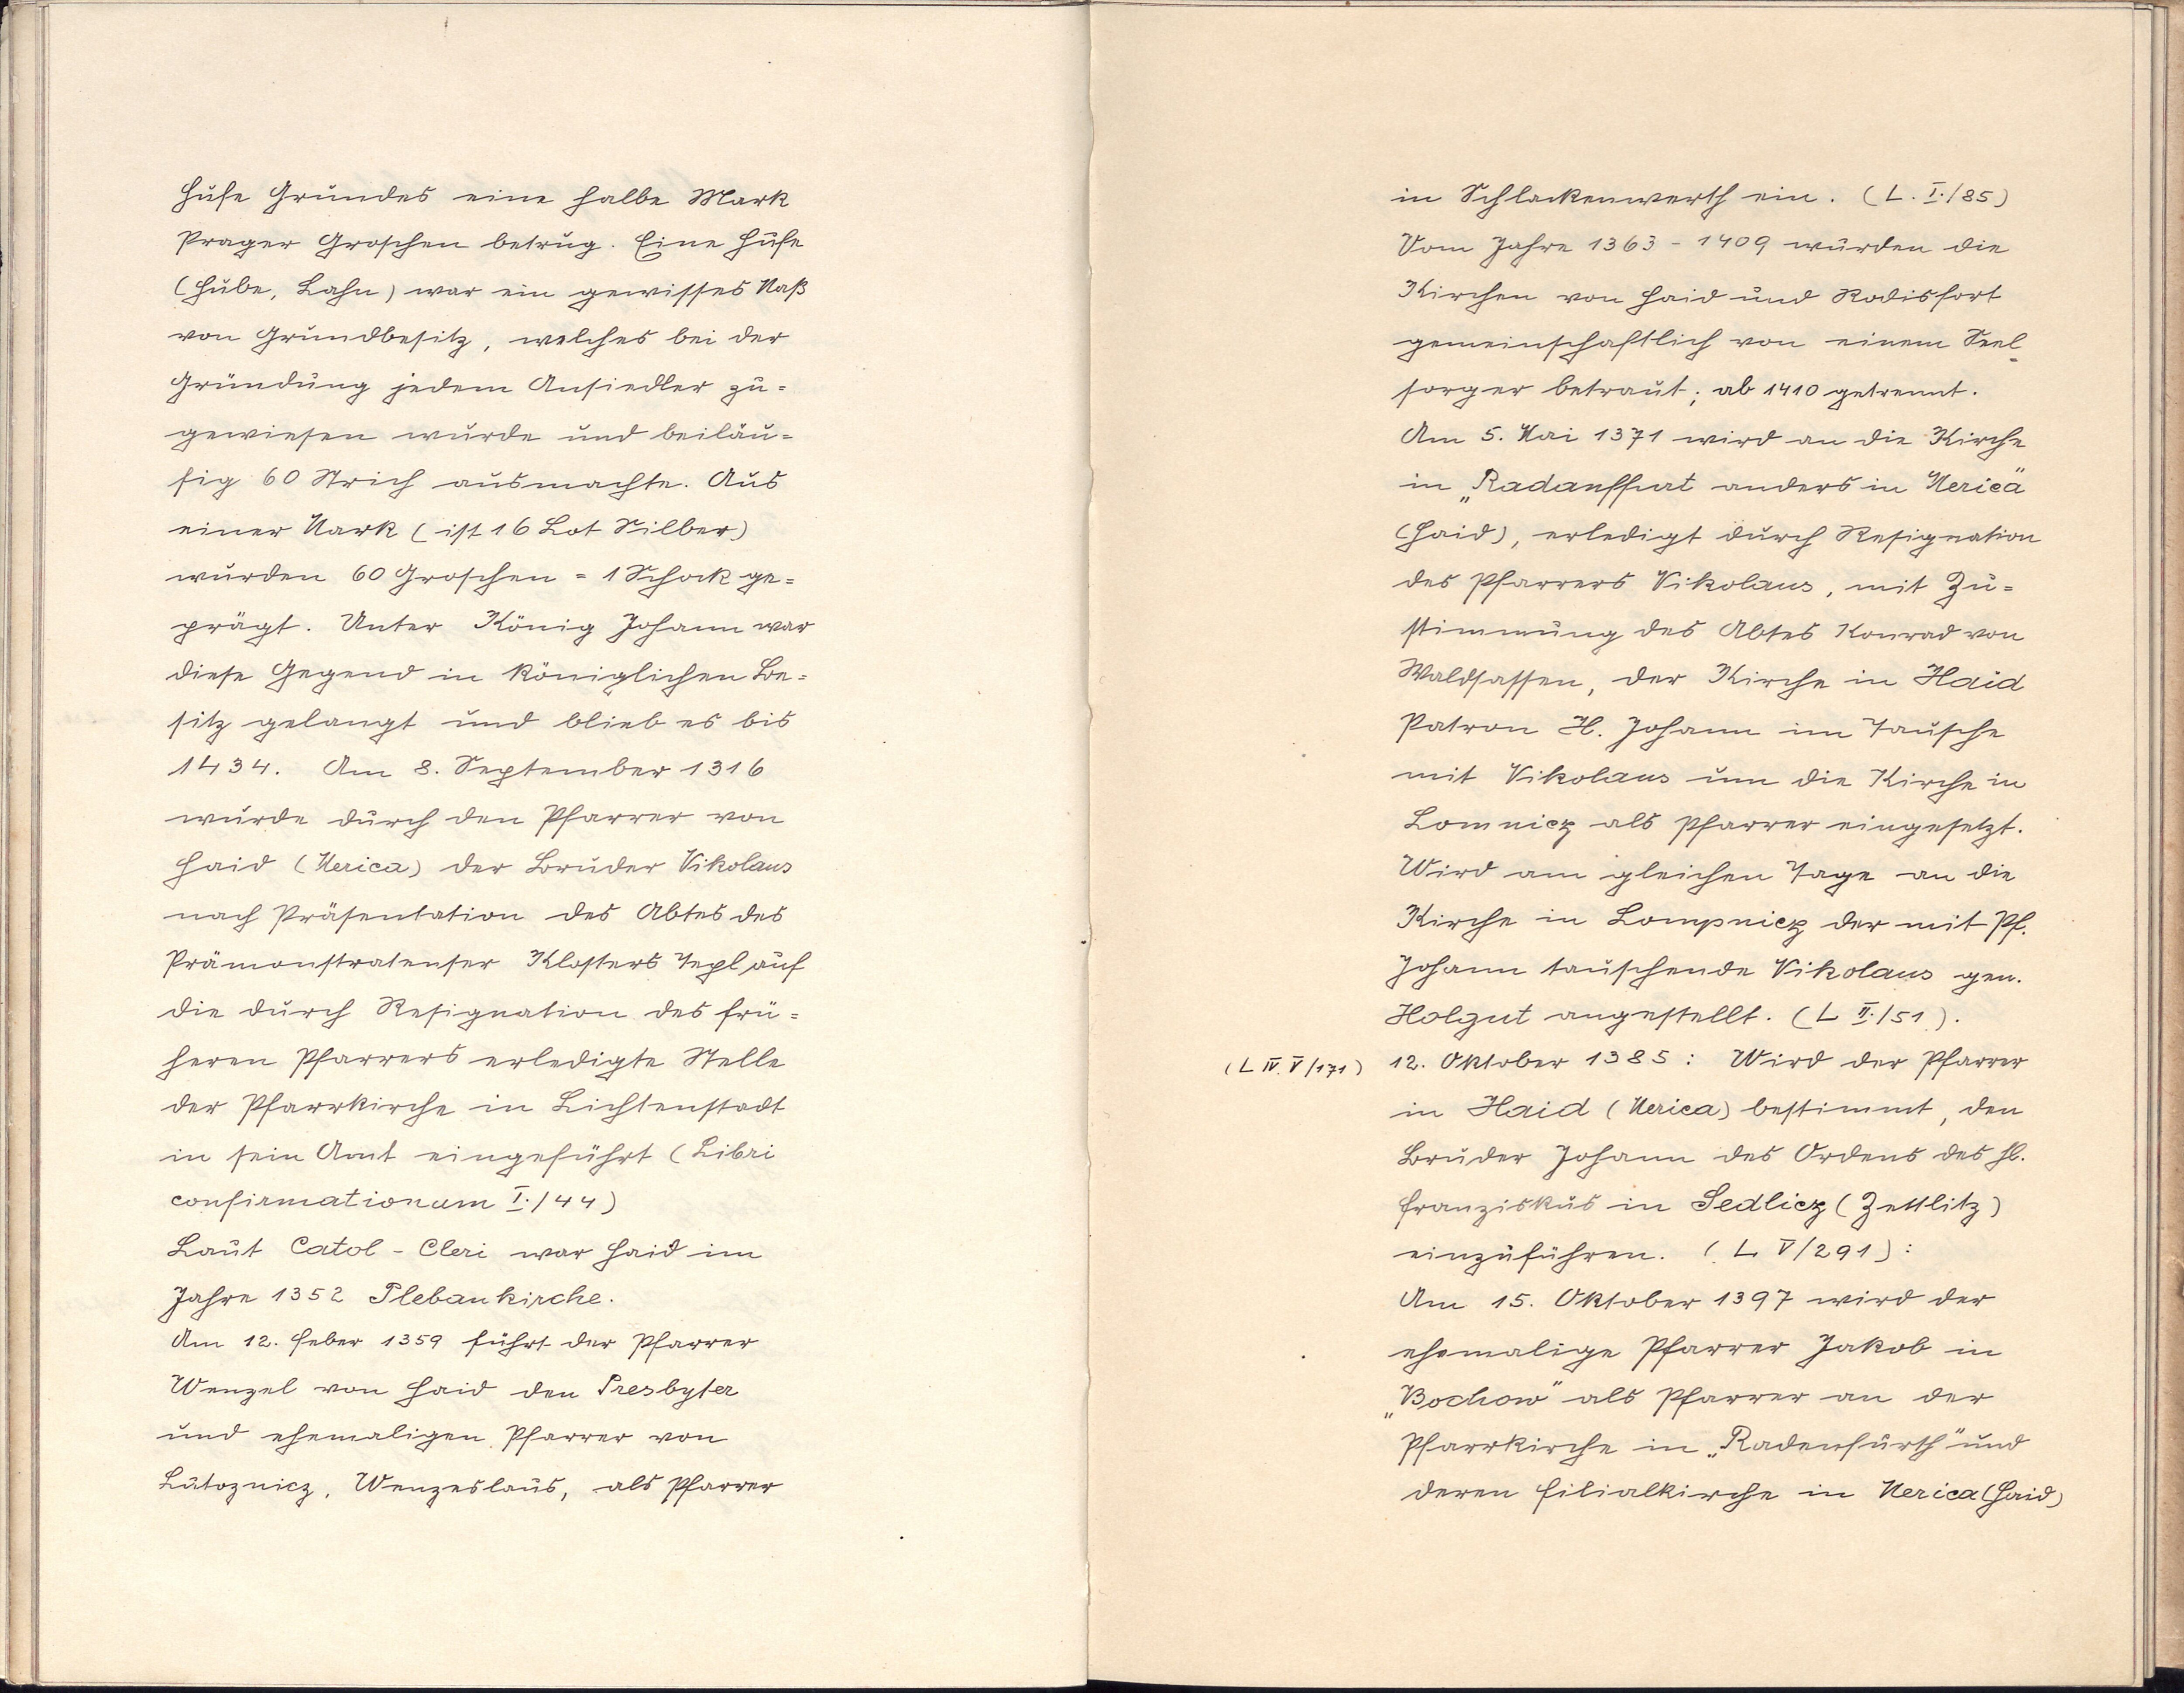 Hufe Grundes eine halbe Mark
Prager Groschen betrug. Eine Hufe
(Hube, Lahn) war ein gewisses Maß
von Grundbesitz, welches bei der
Gründung jedem Ansiedler zu-
gewiesen wurde und beiläu-
fig 60 Strich ausmachte. Aus
einer Mark (ist 16 Lot Silber)
wurden 60 Groschen = 1 Schock ge-
prägt. Unter König Johann war
diese Gegend in königlichen Be-
sitz gelangt und blieb es bis
1434. Am 8. September 1316
wurde durch den Pfarrer von
Haid (Merica) der Bruder Nikolaus
nach Präsentation des Abtes des
Prämonstratenser Klosters Tepl auf
die durch Resignation des frü-
heren Pfarrers erledigte Stelle
der Pfarrkirche in Lichtenstadt
in sein Amt eingeführt (Libri
confirmationum I./44)
Laut Catol - Cleri war Haid im
Jahre 1352 Plebankirche.
Am 12. Feber 1359 führt der Pfarrer
Wenzel von Haid den Presbyter
und ehemaligen Pfarrer von
Lutoznicz, Wenzeslaus, als Pfarrer
in Schlackenwerth ein. (L. I./85)
Vom Jahre 1363 - 1409 wurden die
Kirchen von Haid und Rodisfort
gemeinschaftlich von einem Seel-
sorger betraut; ab 1410 getrennt.
Am 5. Mai 1371 wird an die Kirche
in „Radanffurt anders in Merica"
(Haid), erledigt durch Resignation
des Pfarrers Nikolaus, mit Zu-
stimmung des Abtes Konrad von
Waldsassen, der Kirche in Haid
Patron H. Johann im Tausche
mit Nikolaus um die Kirche in
Lomnicz als Pfarrer eingesetzt.
Wird am gleichen Tage an die
Kirche in Lompnicz der mit Pf.
Johann tauschende Nikolaus gen.
Holgut angestellt. (L II./51).
(L IV. V/171) 12. Oktober 1385: Wird der Pfarrer
in Haid (Merica) bestimmt, den
Bruder Johann des Ordens des hl.
Franziskus in Sedlicz (Zettlitz)
einzuführen. (L V/291):
Am 15. Oktober 1397 wird der
ehemalige Pfarrer Jakob in
„Bochow" als Pfarrer an der
Pfarrkirche in „Radenfurth" und
deren Filialkirche in Merica (Haid)